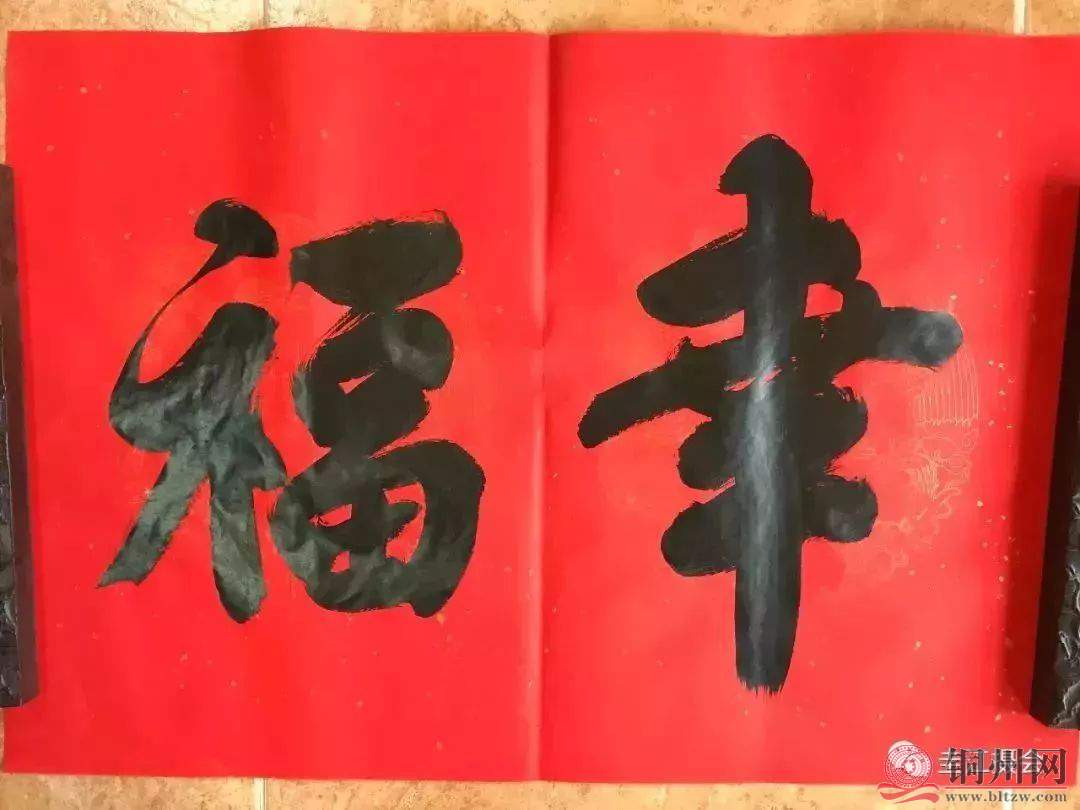 幸福
铜州网
www.bltzw.com